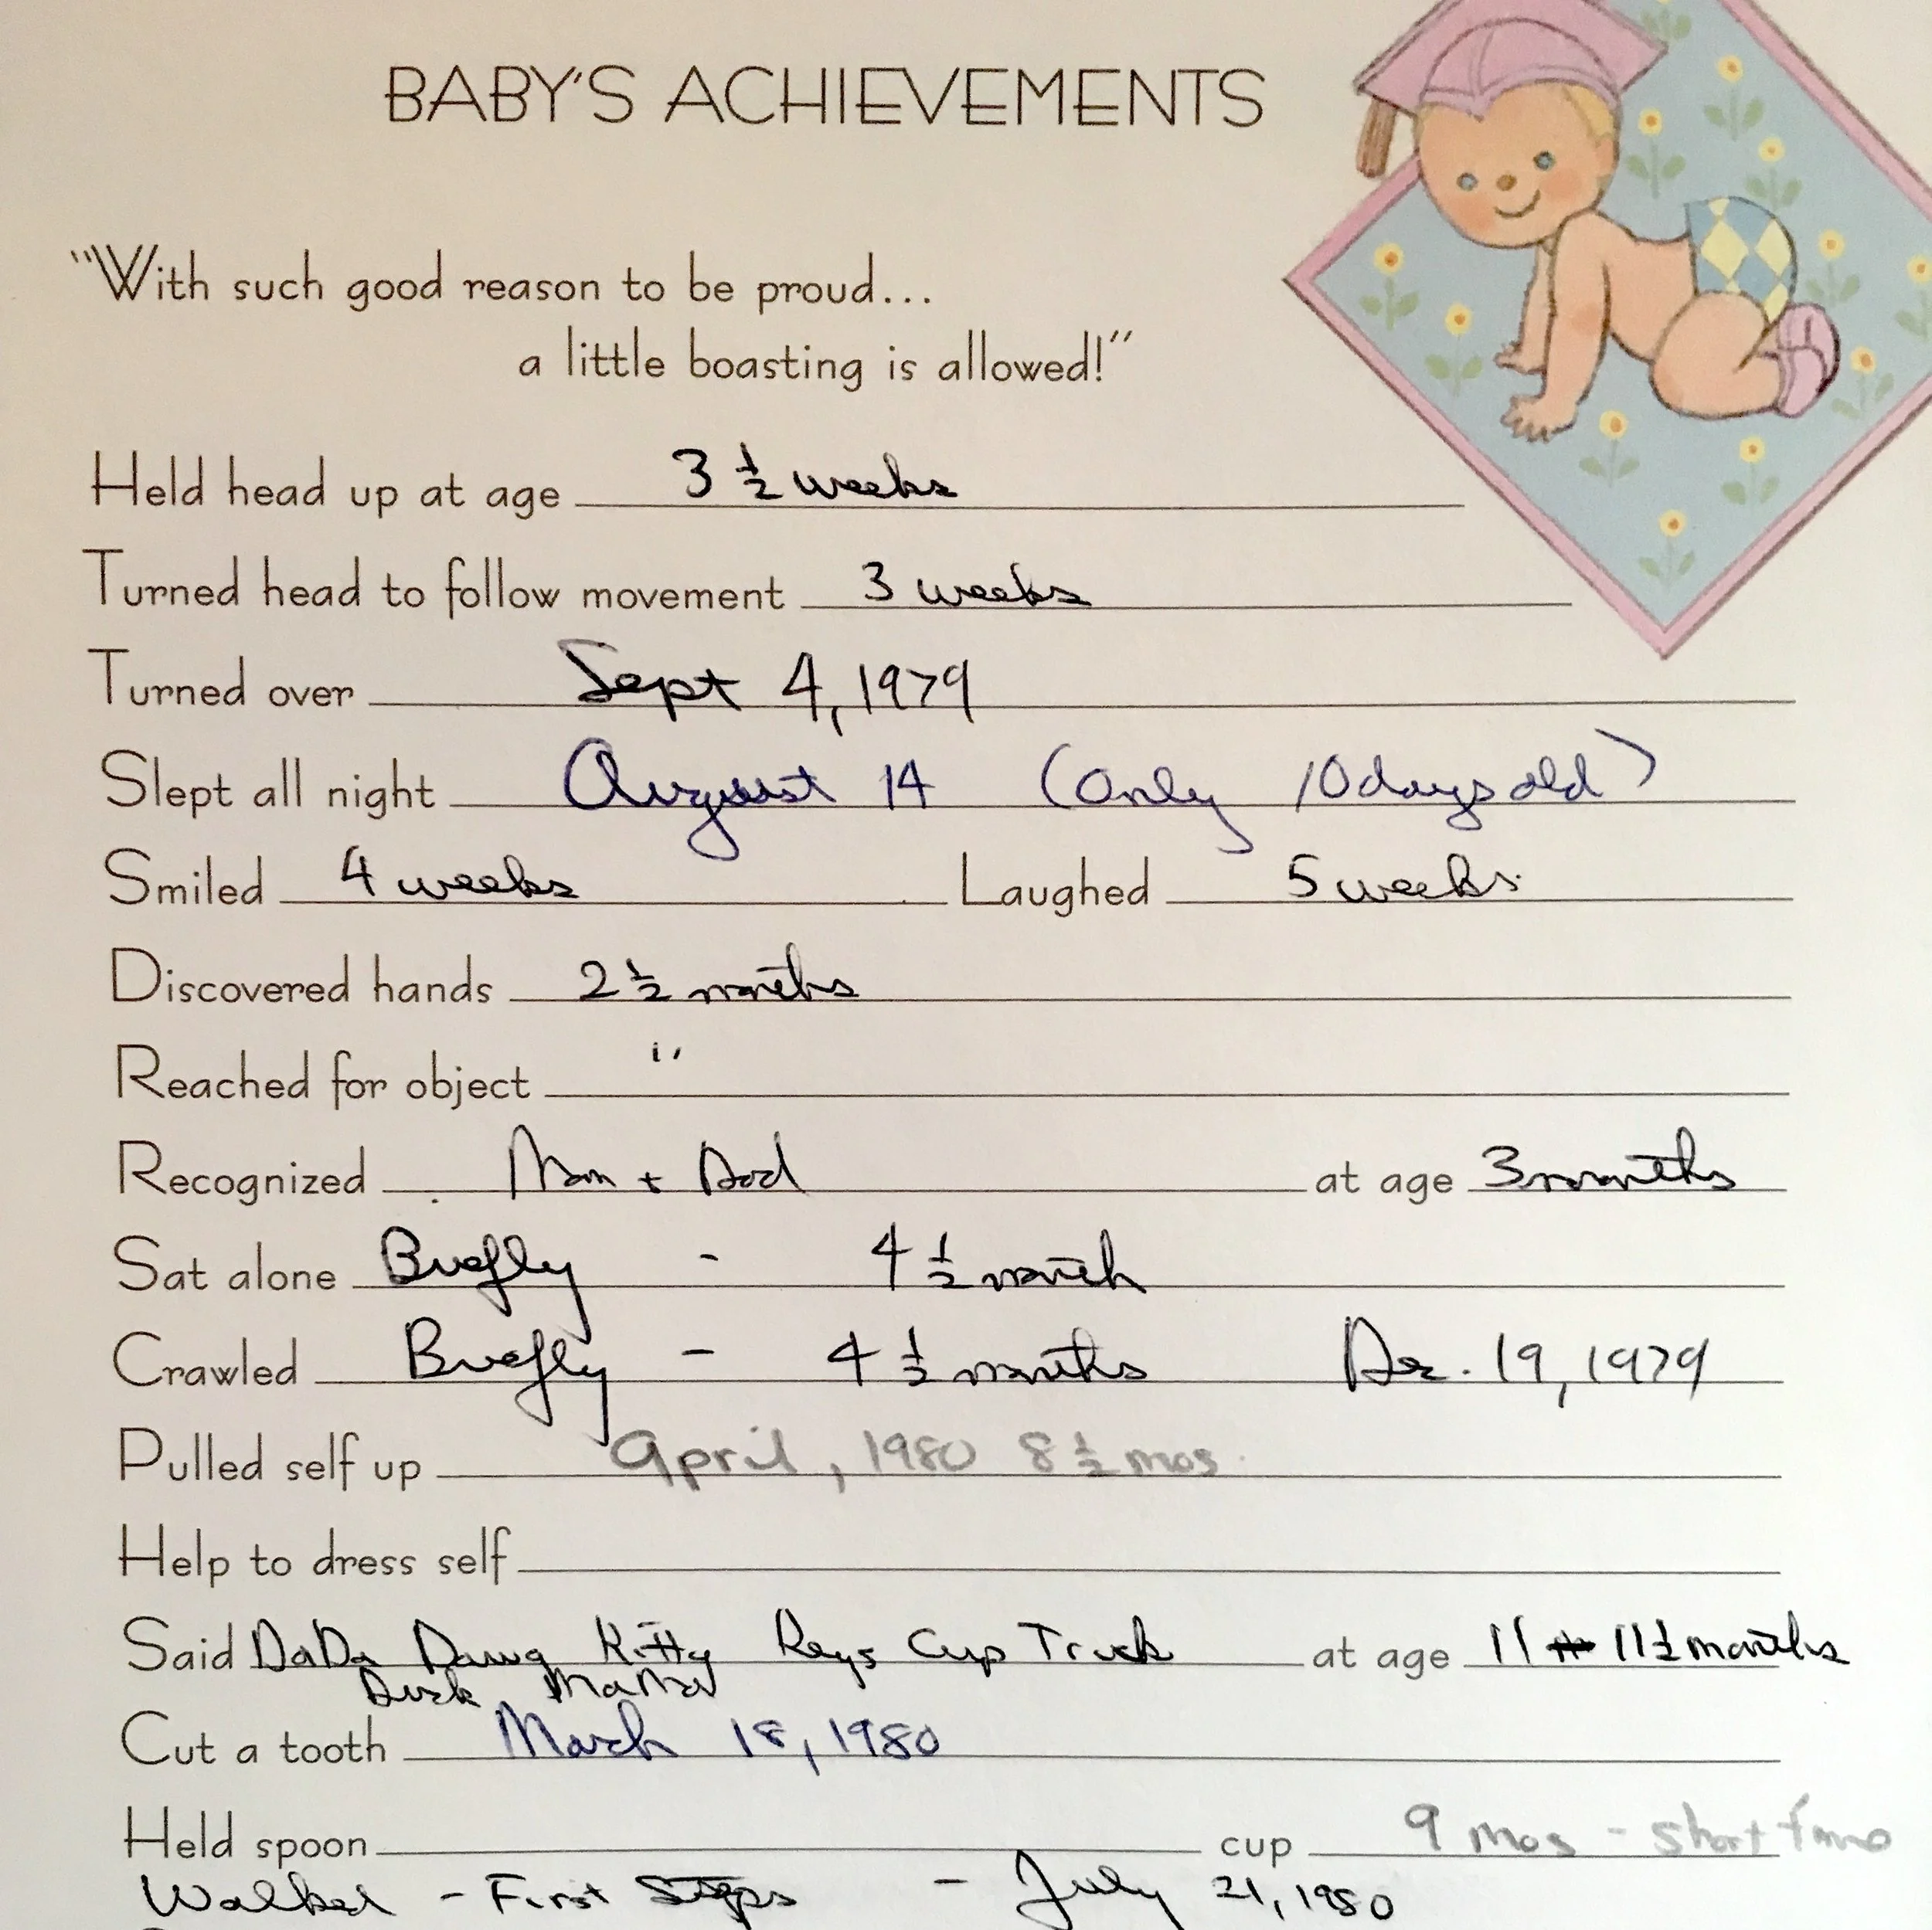 BABY'S ACHIEVEMENTS
"With such good reason to be proud...
a little boasting is allowed!"
Held head up at age 3 ½ weeks
Turned head to follow movement 3 weeks
Turned over Sept 4, 1979
Slept all night August 14 (Only 10 days old)
Smiled 4 weeks Laughed 5 weeks.
Discovered hands 2 ½ months
Reached for object "
Recognized Mom + Dad at age 3 months
Sat alone Briefly - 4 ½ month
Crawled Briefly - 4 ½ months Dec. 19, 1979
Pulled self up April, 1980 8 ½ mos.
Help to dress self
Said DaDa Dawg Kitty Keys Cup Truck at age 11 11½ months
Duck MaMa
Cut a tooth March 18, 1980
Held spoon cup 9 mos - short time
Walked - First Steps - July 21, 1980